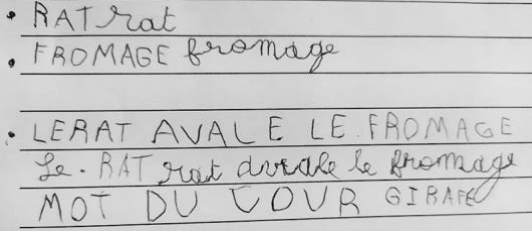 • RAT rat
• FROMAGE fromage
• LERAT AVALE LE FROMAGE
Le. RAT rat avale le fromage
MOT DU VOUR GIRAFE